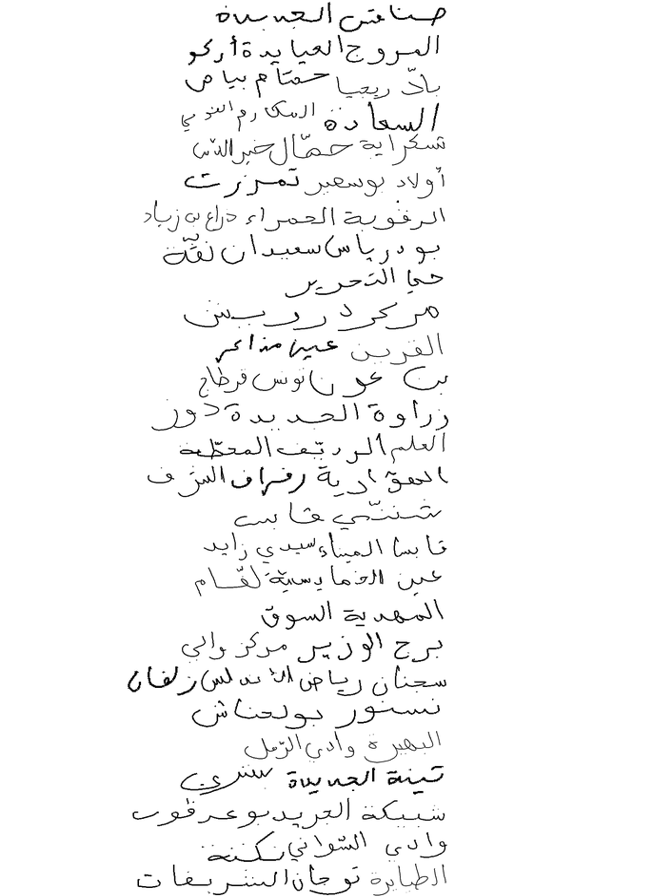 صنافش الجديدة
المروج العيايدة أركو
بادّ ربعيا حمام بياض
السعادة المكارم النويي
شكراية حمّال خير الدين
أولاد بوسمير تمرزت
الرقوبة الحمراء ذراع بن زياد
بودرياس سعيدان نقّة
حي التحرير
مركز درويش
القرين عين مذاكر
بن عون تونس قرطاج
زراوة الجديدة دوز
العلم الرديّف المحطّة
رفراف الشرف
شنني قابس
قابس الميناء سيدي زايد
عين الخمايسيّة لقّام
المهدية السوق
برج الوزير مركز والي
سجنان رياض الأندلس زلفان
تستور بولحناش
البهيرة وادي الرّمل
تينة الجديدة بشري
شبيكة الجريد بوعرقوب
وادي الشواني نكنة
الطبابرة توجان الشريفات